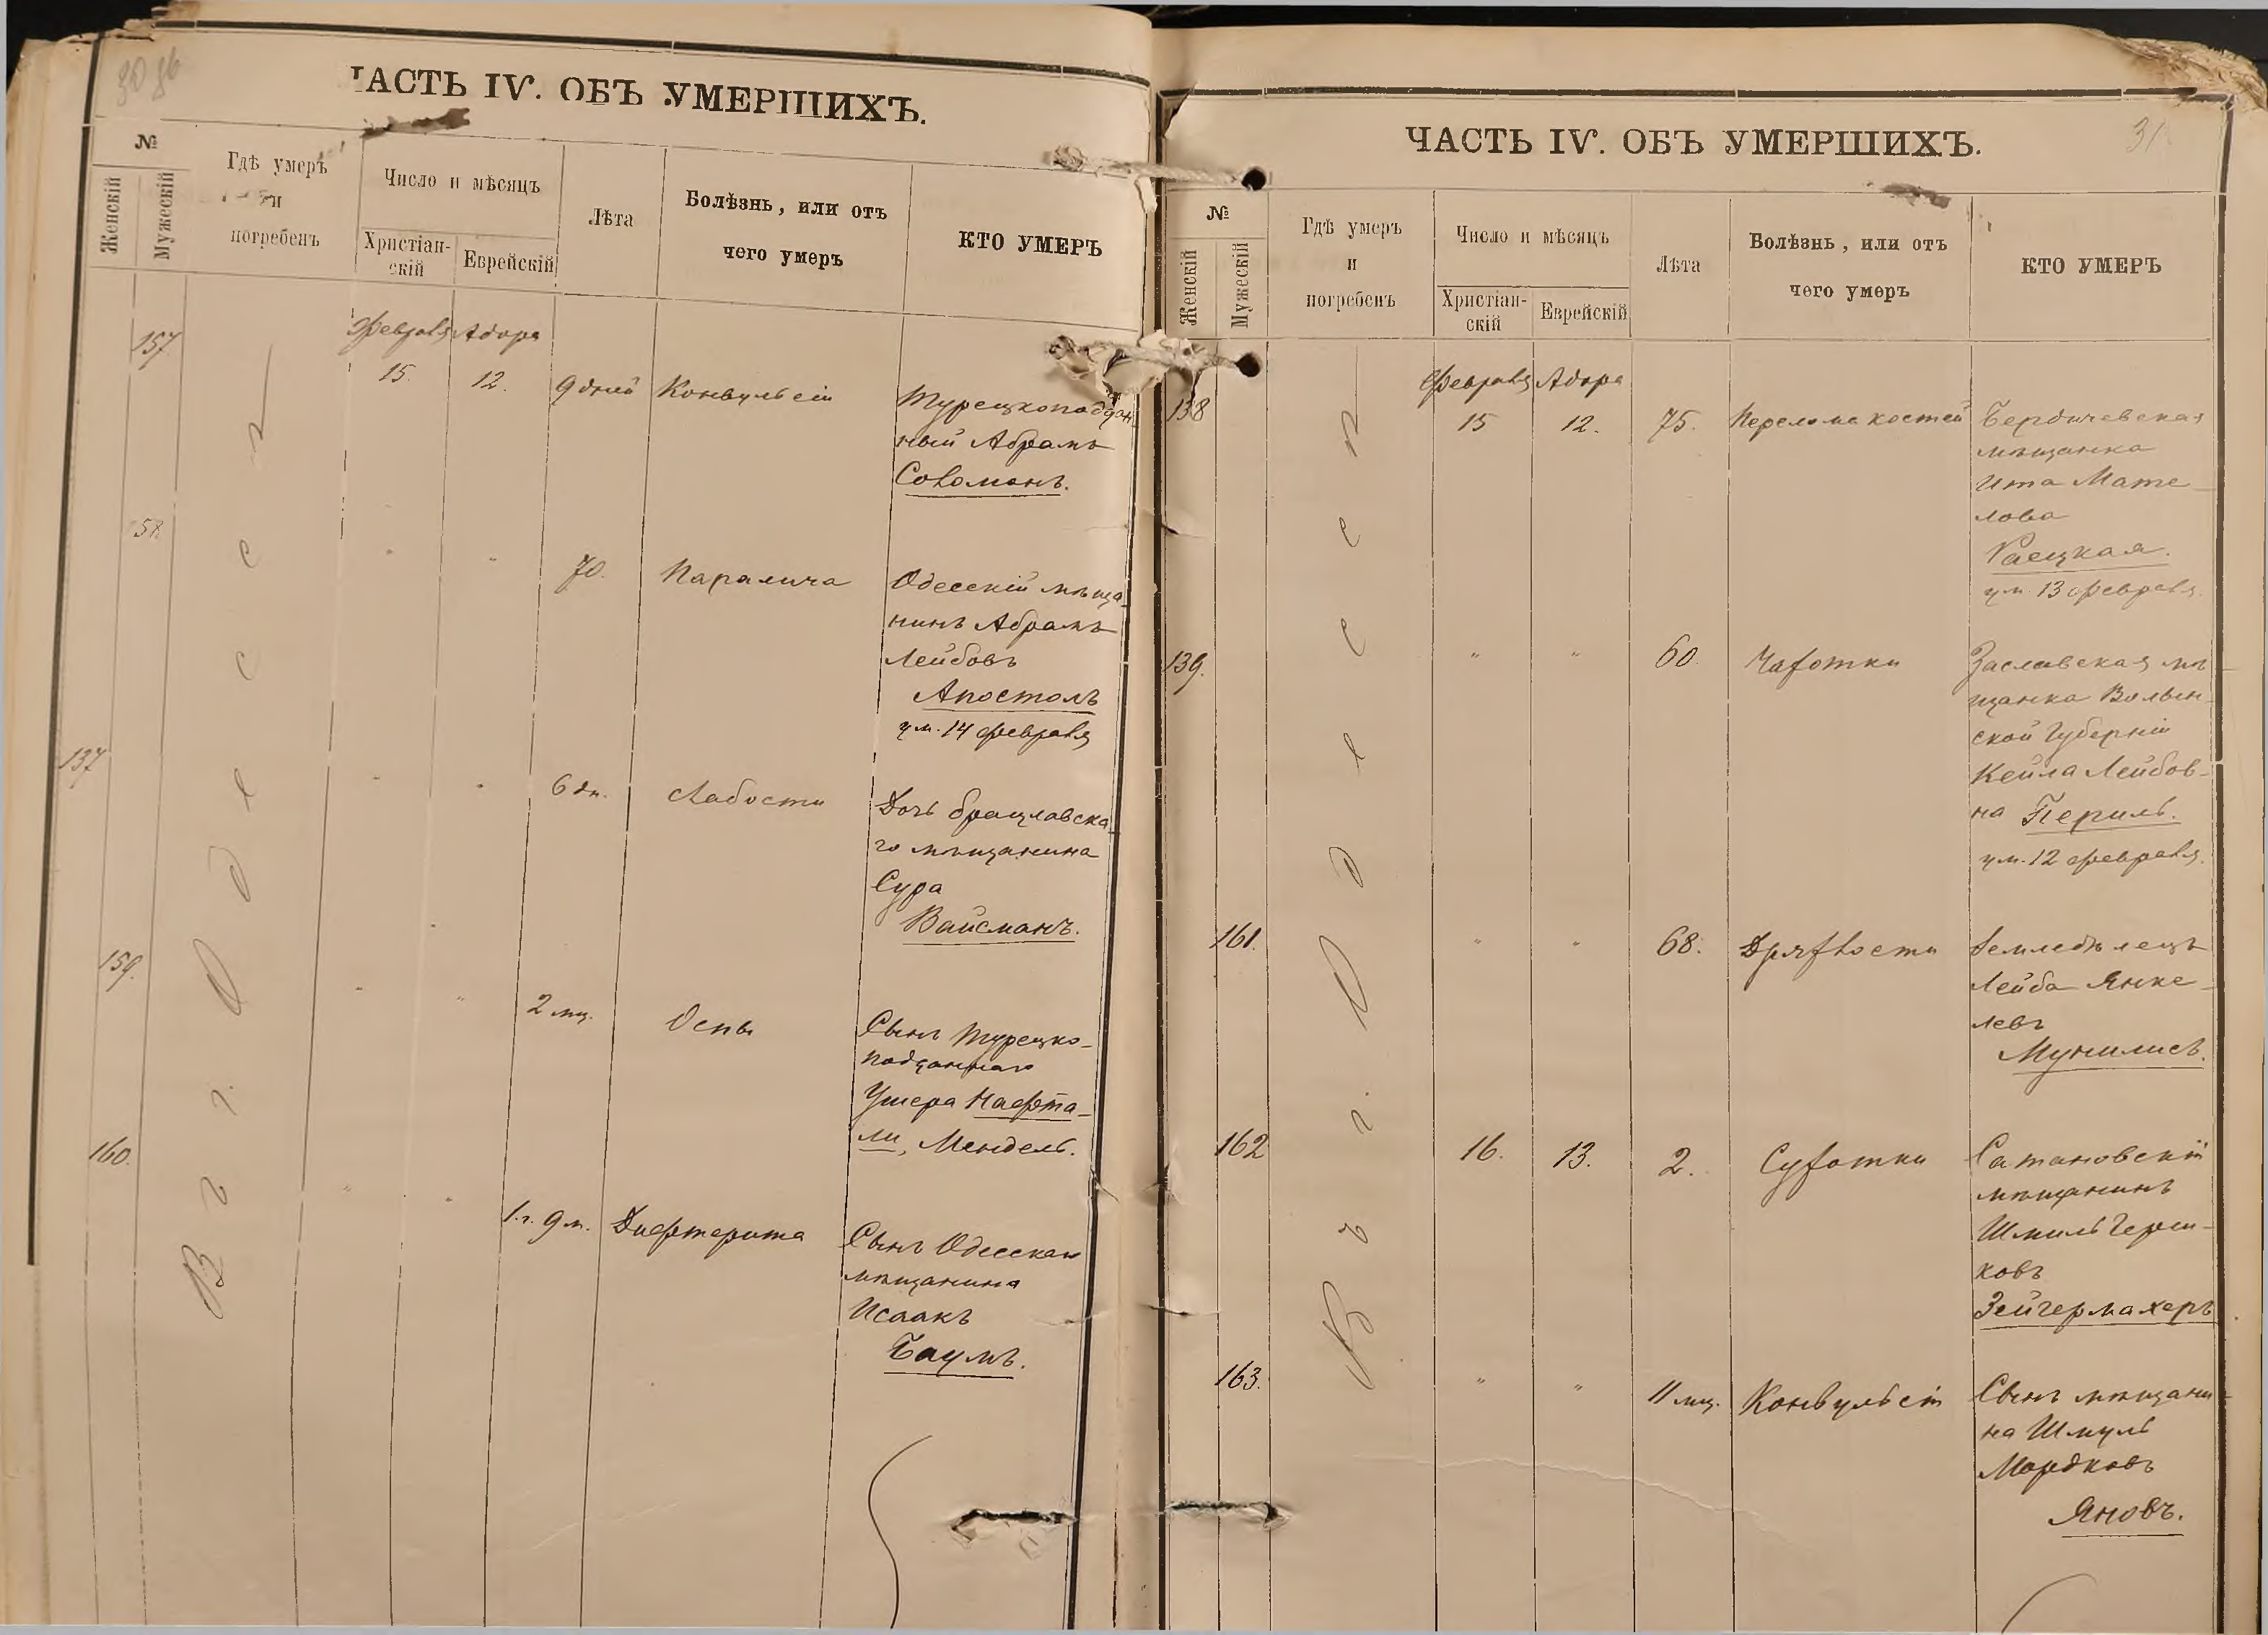 ЧАСТЬ IV. ОБЪ УМЕРШИХЪ.
№
Женскій
Мужескій
Гдѣ умеръ
и
погребенъ
Число и мѣсяцъ
Христіан-
скій
Еврейскій
Лѣта
Болѣзнь, или отъ
чего умеръ
КТО УМЕРЪ
Въ г. Одессѣ
157
Февраля
Адара
15.
12.
9 дней
Конвульсіи
Турецкоподдан
ный Абрамъ
Соломонъ.
158
"
"
70.
Паралича
Одесскій мѣща-
нинъ Абрамъ
Лейбовъ
Апостолъ
ум. 14 февраля
137
"
"
6 дн.
Слабости
Дочь брацлавска-
го мѣщанина
Сура
Вайсманъ.
159.
"
"
2 мц.
Оспы
Сынъ Турецко-
подданнаго
Ушера Нафта-
ли, Мендель.
160.
"
"
1 г. 9 м.
Дифтерита
Сынъ Одесскаго
мѣщанина
Исаакъ
Баумъ.
ЧАСТЬ IV. ОБЪ УМЕРШИХЪ.
31
№
Женскій
Мужескій
Гдѣ умеръ
и
погребенъ
Число и мѣсяцъ
Христіан-
скій
Еврейскій
Лѣта
Болѣзнь, или отъ
чего умеръ
КТО УМЕРЪ
Въ г. Одессѣ
138
Февраля
Адара
15
12.
75.
Перелома костей
Бердичевская
мѣщанка
Ита Мате-
лова
Раецкая.
ум. 13 февраля.
139.
"
"
60.
Чахотки
Заславская мѣ-
щанка Волын-
ской Губерніи
Кейла Лейбов-
на Периль.
ум. 12 февраля.
161.
"
"
68.
Дряхлости
Земледѣлецъ
Лейба Янке-
левъ
Мунилисъ.
162
16.
13.
2.
Сухотки
Сатановскій
мѣщанинъ
Шмиль Герш-
ковъ
Зейгермахеръ
163.
"
"
11 мц.
Конвульсіи
Сынъ мѣщани-
на Шмуль
Мордковъ
Яновъ.